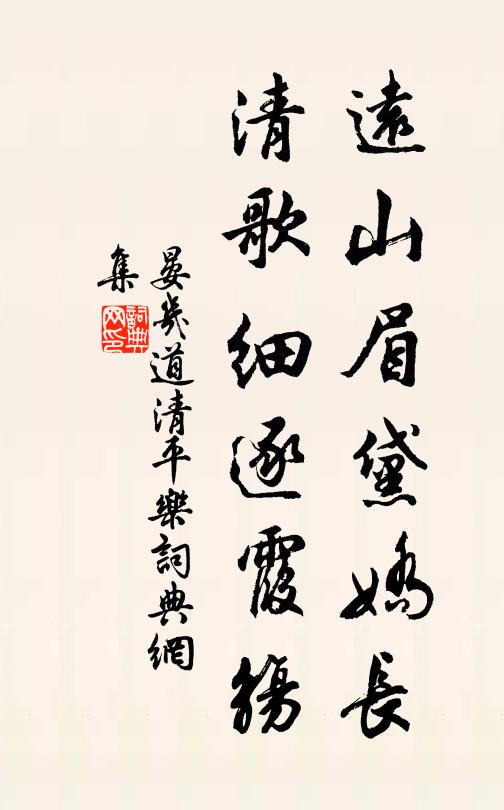 遠山眉黛嬌長
清歌細逐霞觴
晏幾道清平樂詞典網
集
詞典
网印